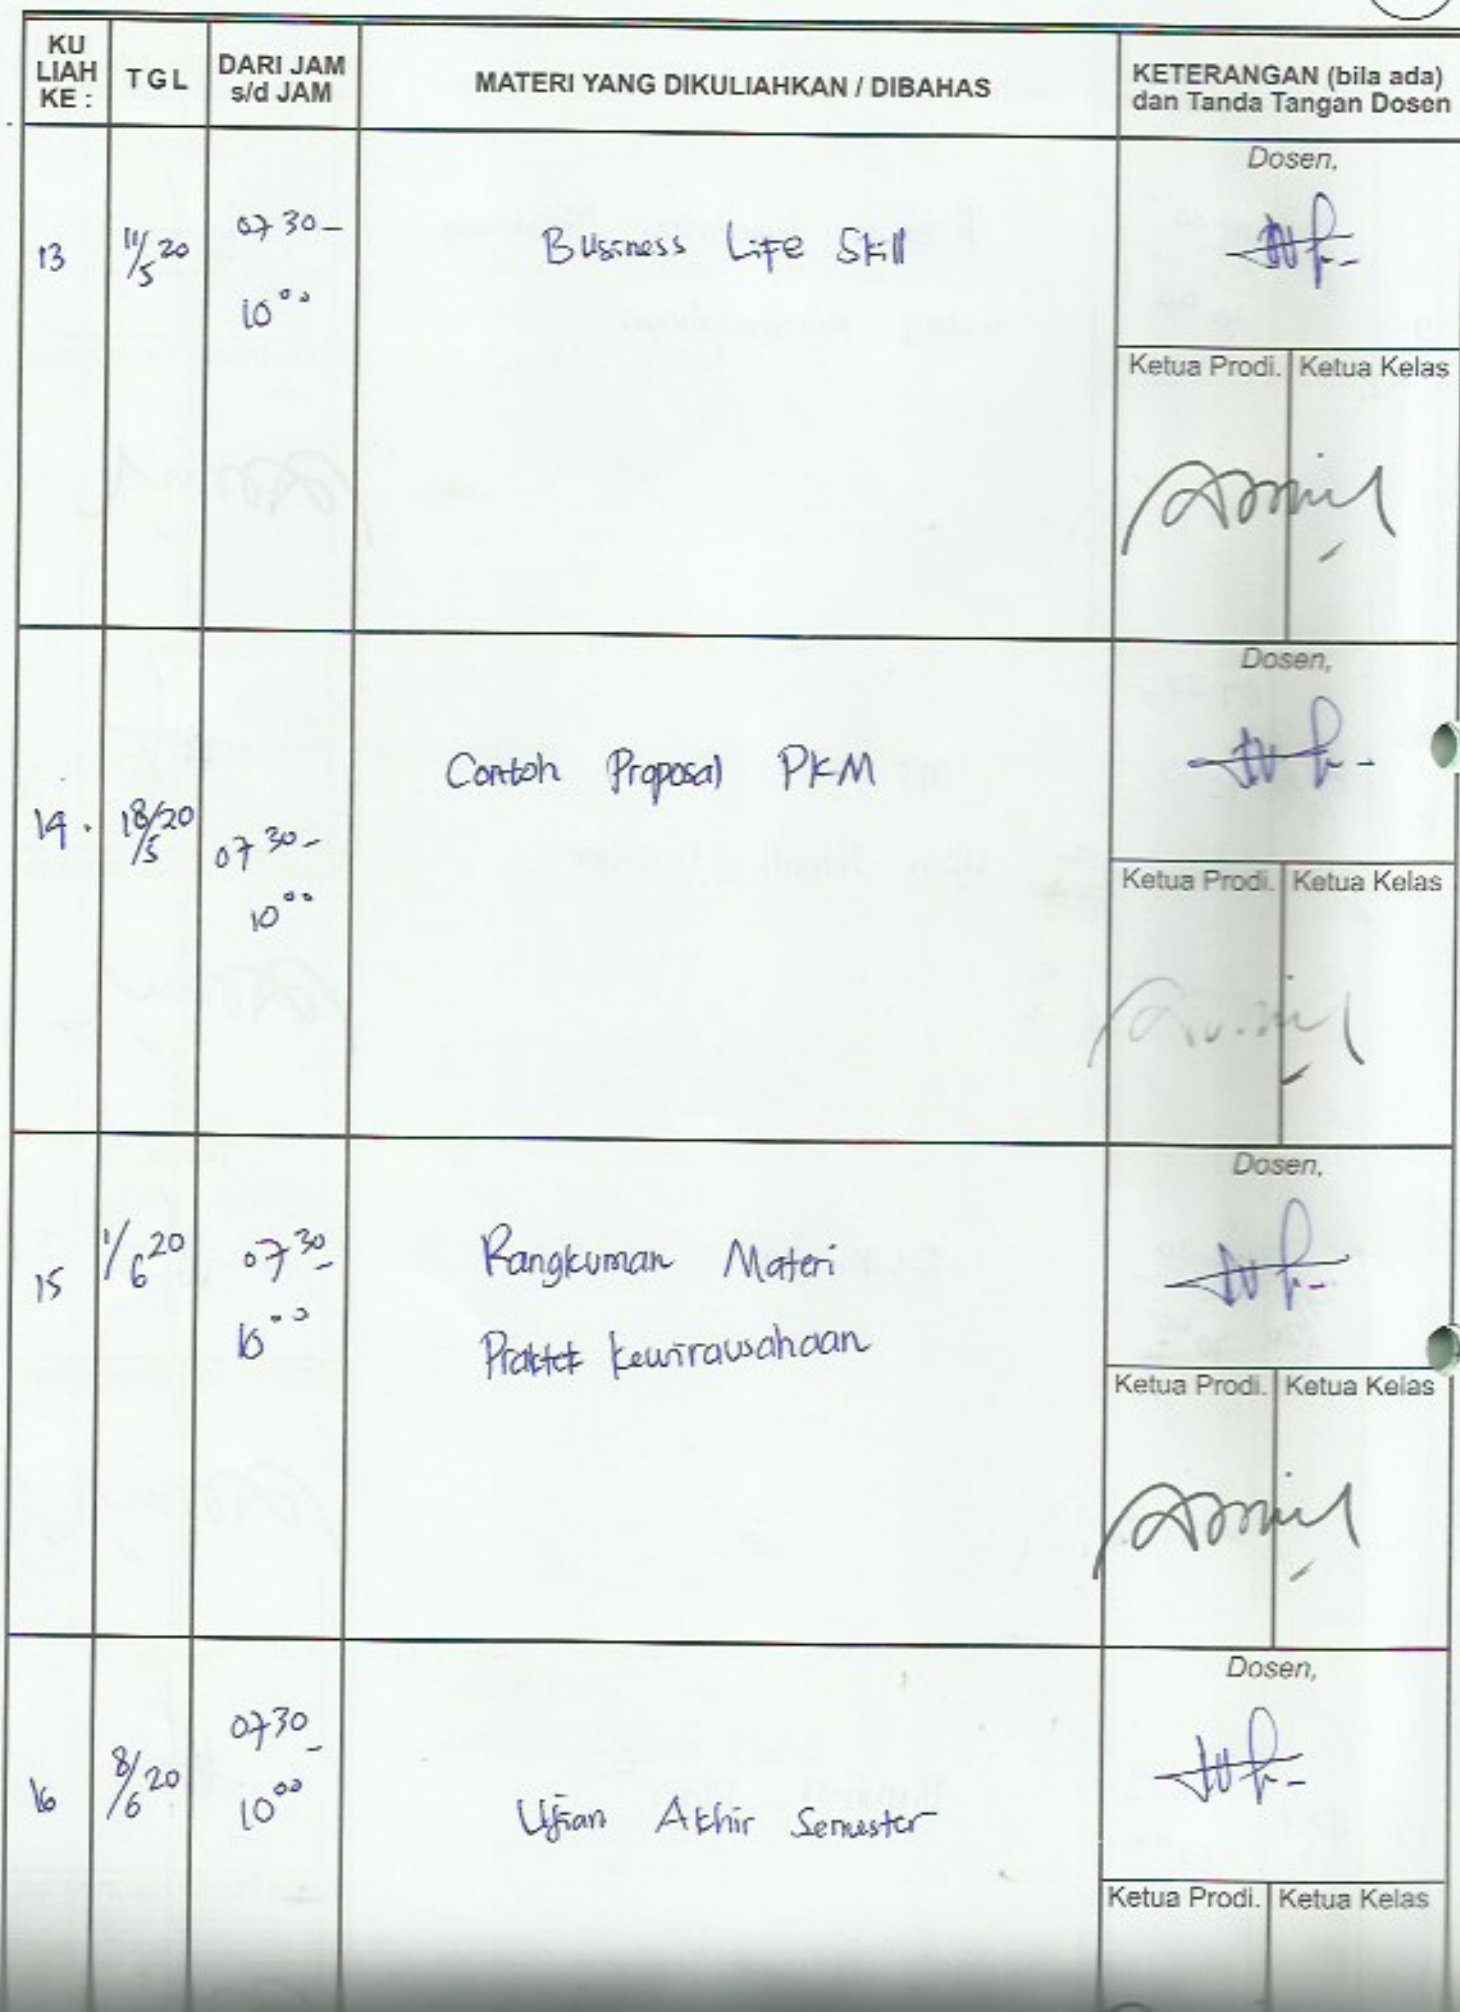 KU LIAH KE :
TGL
DARI JAM s/d JAM
MATERI YANG DIKULIAHKAN / DIBAHAS
KETERANGAN (bila ada) dan Tanda Tangan Dosen
13
11/5 20
07 30 -
10 00
Business Life Skill
Dosen,
Ketua Prodi.
Ketua Kelas
14.
18/5 20
07 30 -
10 00
Contoh Proposal PKM
Dosen,
Ketua Prodi.
Ketua Kelas
15
1/6 20
07 30 -
10 00
Rangkuman Materi
Praktek kewirausahaan
Dosen,
Ketua Prodi.
Ketua Kelas
16
8/6 20
07 30 -
10 00
Ujian Akhir Semester
Dosen,
Ketua Prodi.
Ketua Kelas